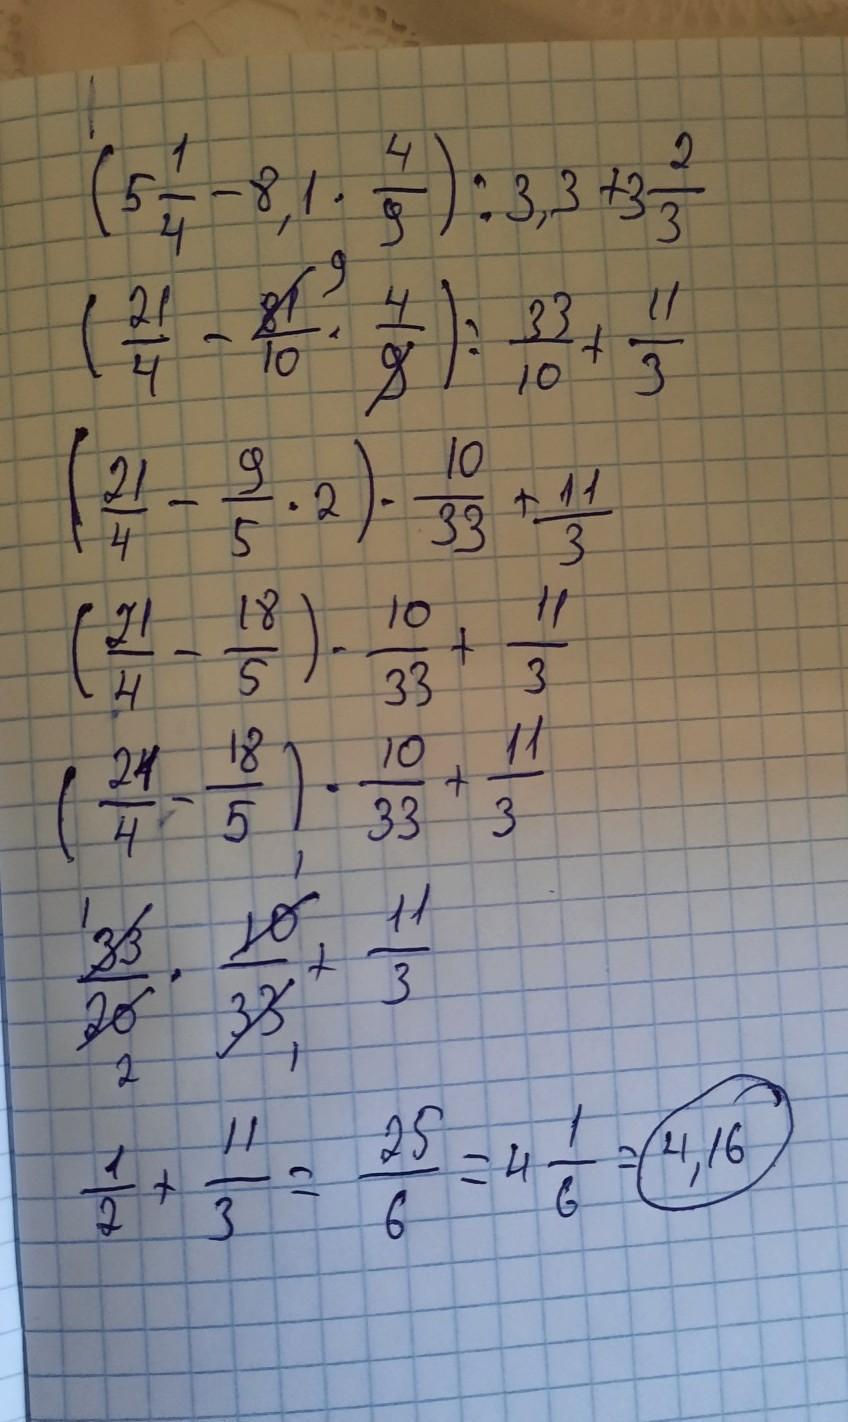 (5 1/4 - 8,1 · 4/9) : 3,3 + 3 2/3
(21/4 - 81/10 · 4/9) : 33/10 + 11/3 9
(21/4 - 9/5 · 2) · 10/33 + 11/3
(21/4 - 18/5) · 10/33 + 11/3
(21/4 - 18/5) · 10/33 + 11/3
1 33/20 2 · 1 10/33 1 + 11/3
1/2 + 11/3 = 25/6 = 4 1/6 = 4,16